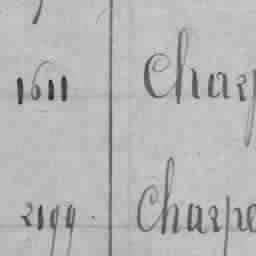 1611 Charp
2199. Charpe